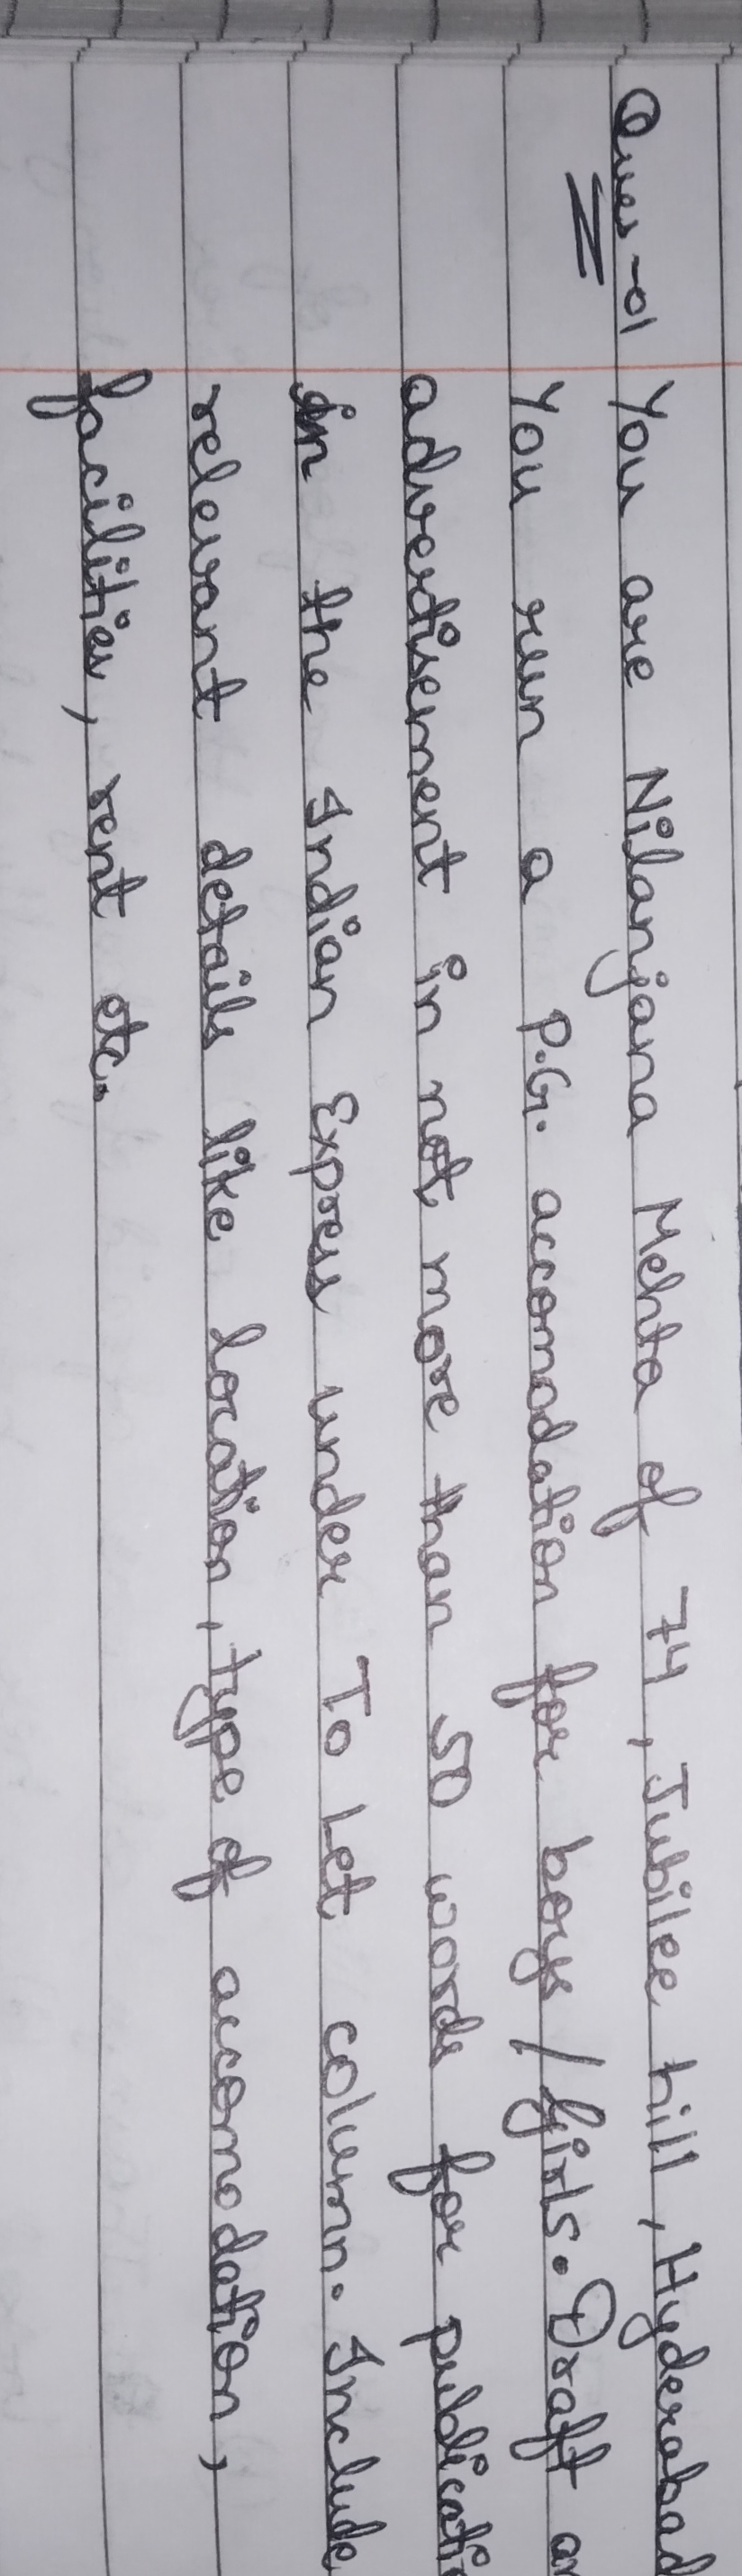 Ques-01 You are Nilanjana Mehta of 74, Jubilee hill, Hyderabad
You run a P.G. accomodation for boys / girls. Draft an
advertisement in not more than 50 words for
in the Indian Express under To Let column. Include
relevant details like location, type of accomodation,
facilities, rent etc.